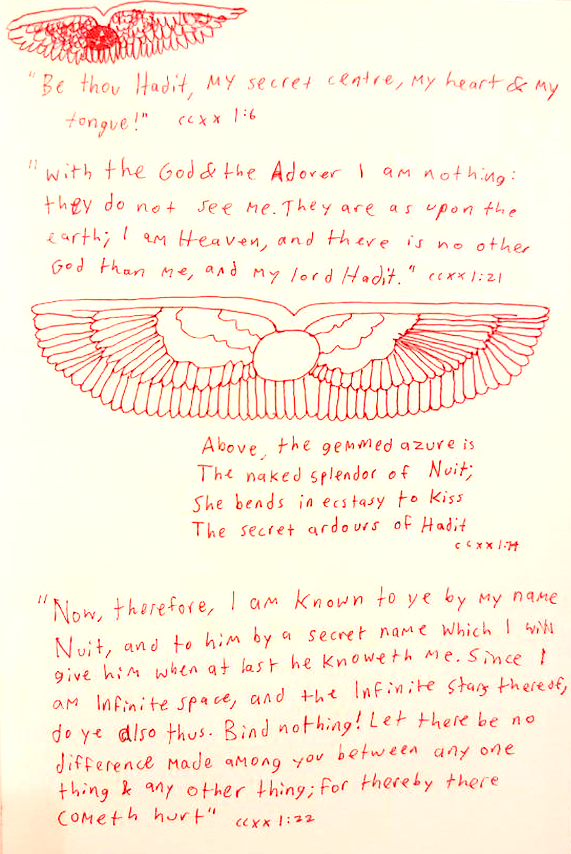 "Be thou Hadit, my secret centre, my heart & my
tongue!" ccxx 1:6
"With the God & the Adorer I am nothing:
they do not see me. They are as upon the
earth; I am Heaven, and there is no other
God than me, and my lord Hadit." ccxx 1:21
Above, the gemmed azure is
The naked splendor of Nuit;
She bends in ecstasy to Kiss
The secret ardours of Hadit
ccxx 1:14
"Now, therefore, I am known to ye by my name
Nuit, and to him by a secret name which I will
give him when at last he knoweth me. Since I
am Infinite space, and the Infinite stars thereof,
do ye also thus. Bind nothing! Let there be no
difference made among you between any one
thing & any other thing; for thereby there
cometh hurt" ccxx 1:22